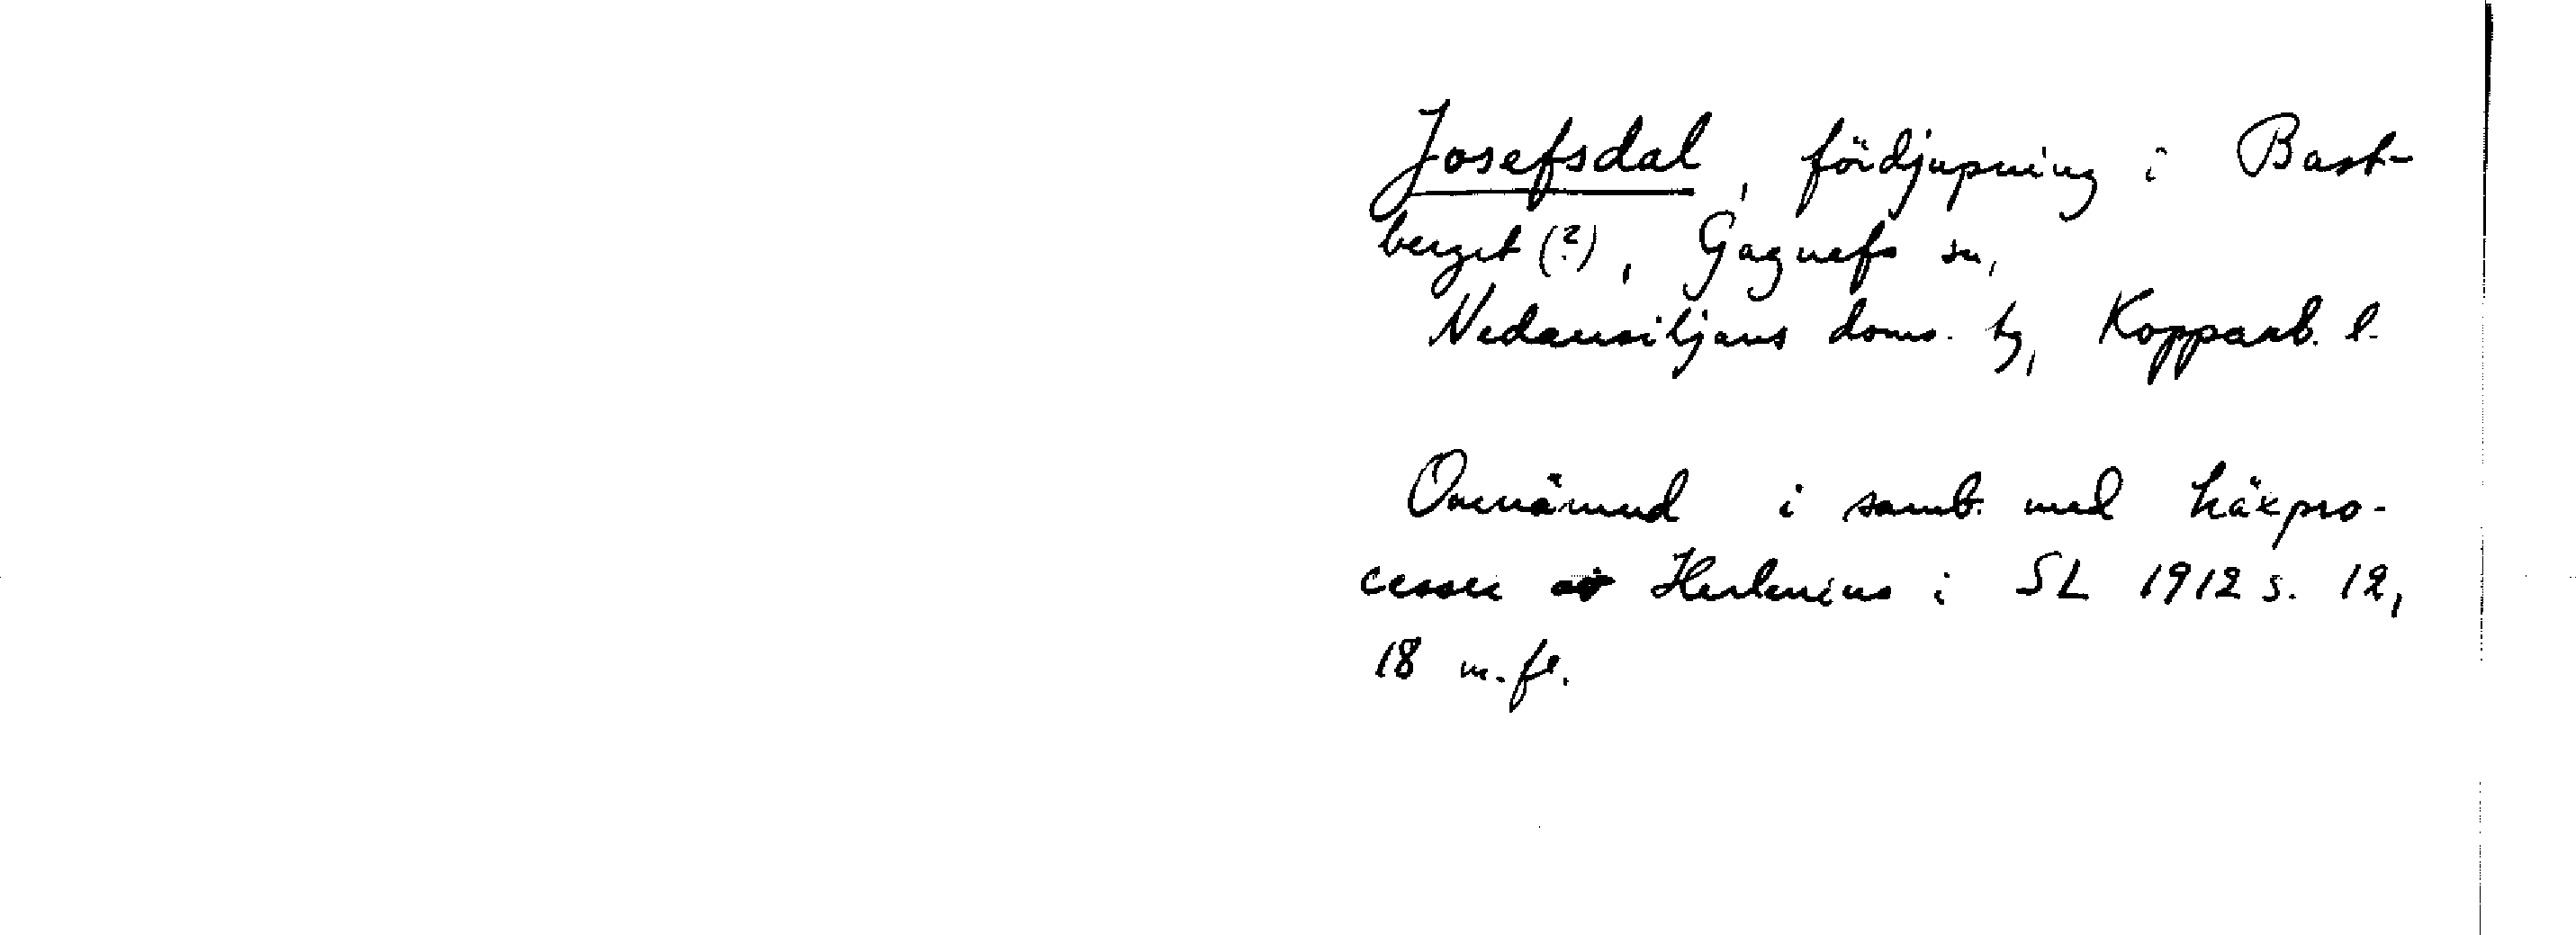 Josefsdal, fördjupning i Bast-
berget (?), Gagnefs sn,
Nedansiljans doms. tg, Kopparb. l.
Omnämnd i samb. med häxpro-
cesser av Herlenius i SL 1912 s. 12,
18 m.fl.